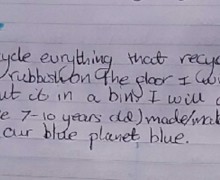 ycle everything that recyc
/rubbish on the floor I w
ut it in a bin, I will
e 7-10 years old) made/mak
our blue planet blue.